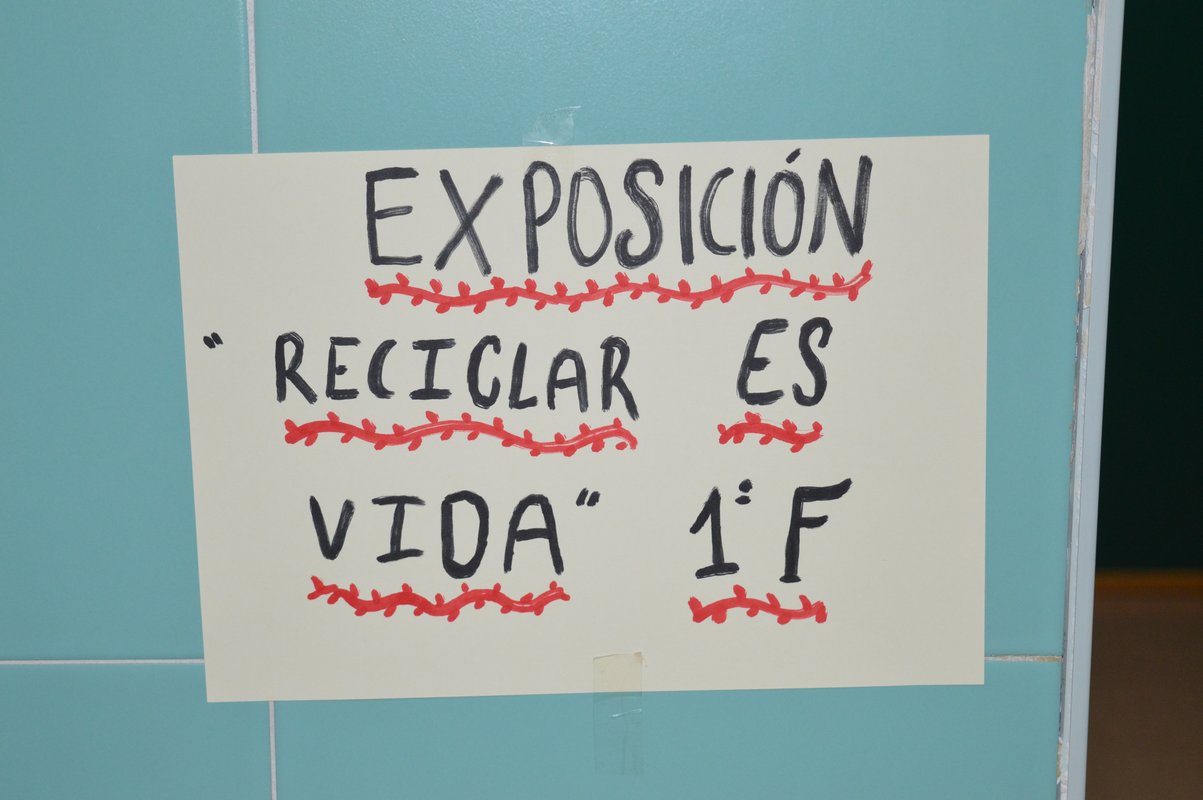 EXPOSICIÓN
"RECICLAR ES
VIDA" 1º F